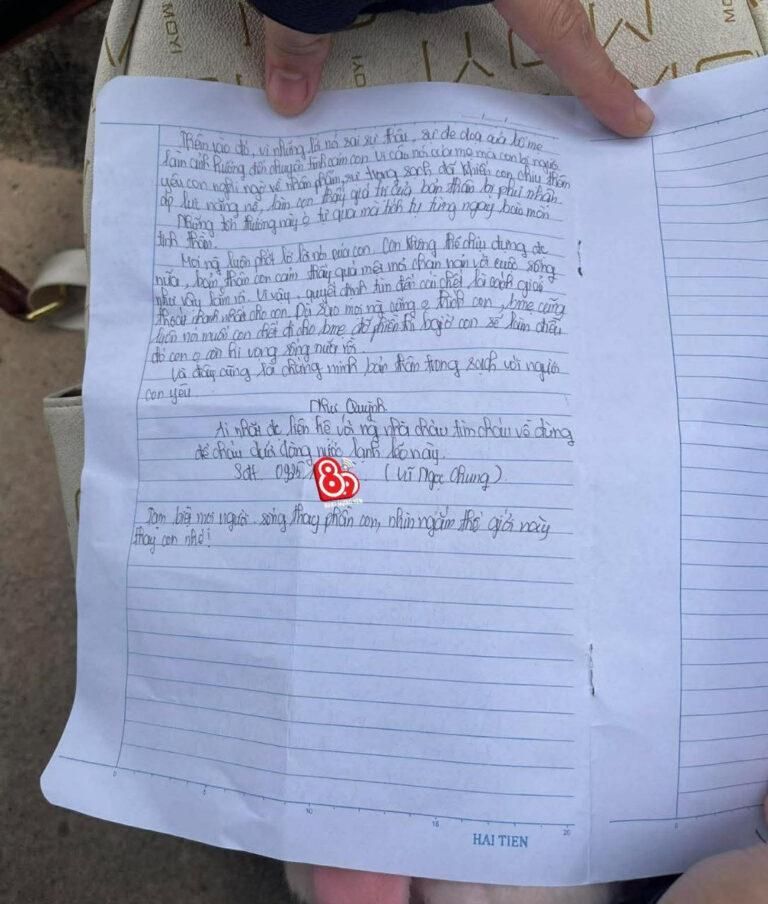 MOYI
MOYI
Thêm vào đó, vì những lời nói sai sự thật, sự đe doạ của bố mẹ
làm ảnh hưởng đến chuyện tình cảm con. Vì câu nói của mẹ mà con bị người
yêu con nghi ngờ về nhân phẩm, sự trong sạch đã khiến con chịu thêm
áp lực nặng nề, làm con thấy giá trị của bản thân bị phủ nhận.
Những tổn thương này o tự qua mà tích tụ từng ngày bào mòn
tinh thần.
Mọi ng luôn phớt lờ con. Con không thể chịu đựng đc
nữa, bản thân con cảm thấy quá mệt mỏi chán nản với cuộc sống
như vậy lắm rồi. Vì vậy, quyết định tìm đến cái chết là cách giải
thoát nhanh nhất cho con. Dù sao mọi ng cũng o thích con, bmẹ cũng
luôn nói muốn con chết đi cho bmẹ đỡ phiền thì bgiờ con sẽ làm điều
đó con o còn hi vọng sống nữa rồi.
Và đây cũng là chứng minh bản thân trong sạch với người
con yêu.
Như Quỳnh
Ai nhặt đc liên hệ với ng nhà cháu tìm cháu về đừng
để cháu dưới dòng nước lạnh lẽo này.
Sđt 0935 (Vũ Ngọc Chung).
Tạm biệt mọi người sống thay phần con, nhìn ngắm thế giới này
thay con nhé!
0 5 10 15 20
0
HAI TIEN